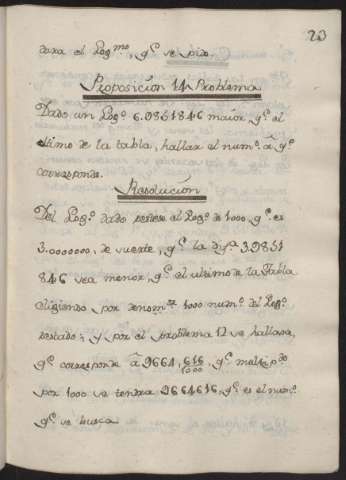 23
dara el Logmo, qe se pide.
Proposición 14 Problema
Dado un Logo 6.9851846 maior, qe el
ultimo de la tabla, hallar el numo â qe
corresponde.
Resolución
Del Logo dado restese el Logo de 1000, qe es
3.0000000, de suerte, qe la difa 3.9851
846 sea menor, qe el ultimo de la Tabla
eligiendo por denomor 1000 numo del Logo
restado; y por el problema 12 se hallara,
qe corresponde â 9664 616/1000, qe multipdo
por 1000 se tendra 9664616, qe es el numo
qe se busca